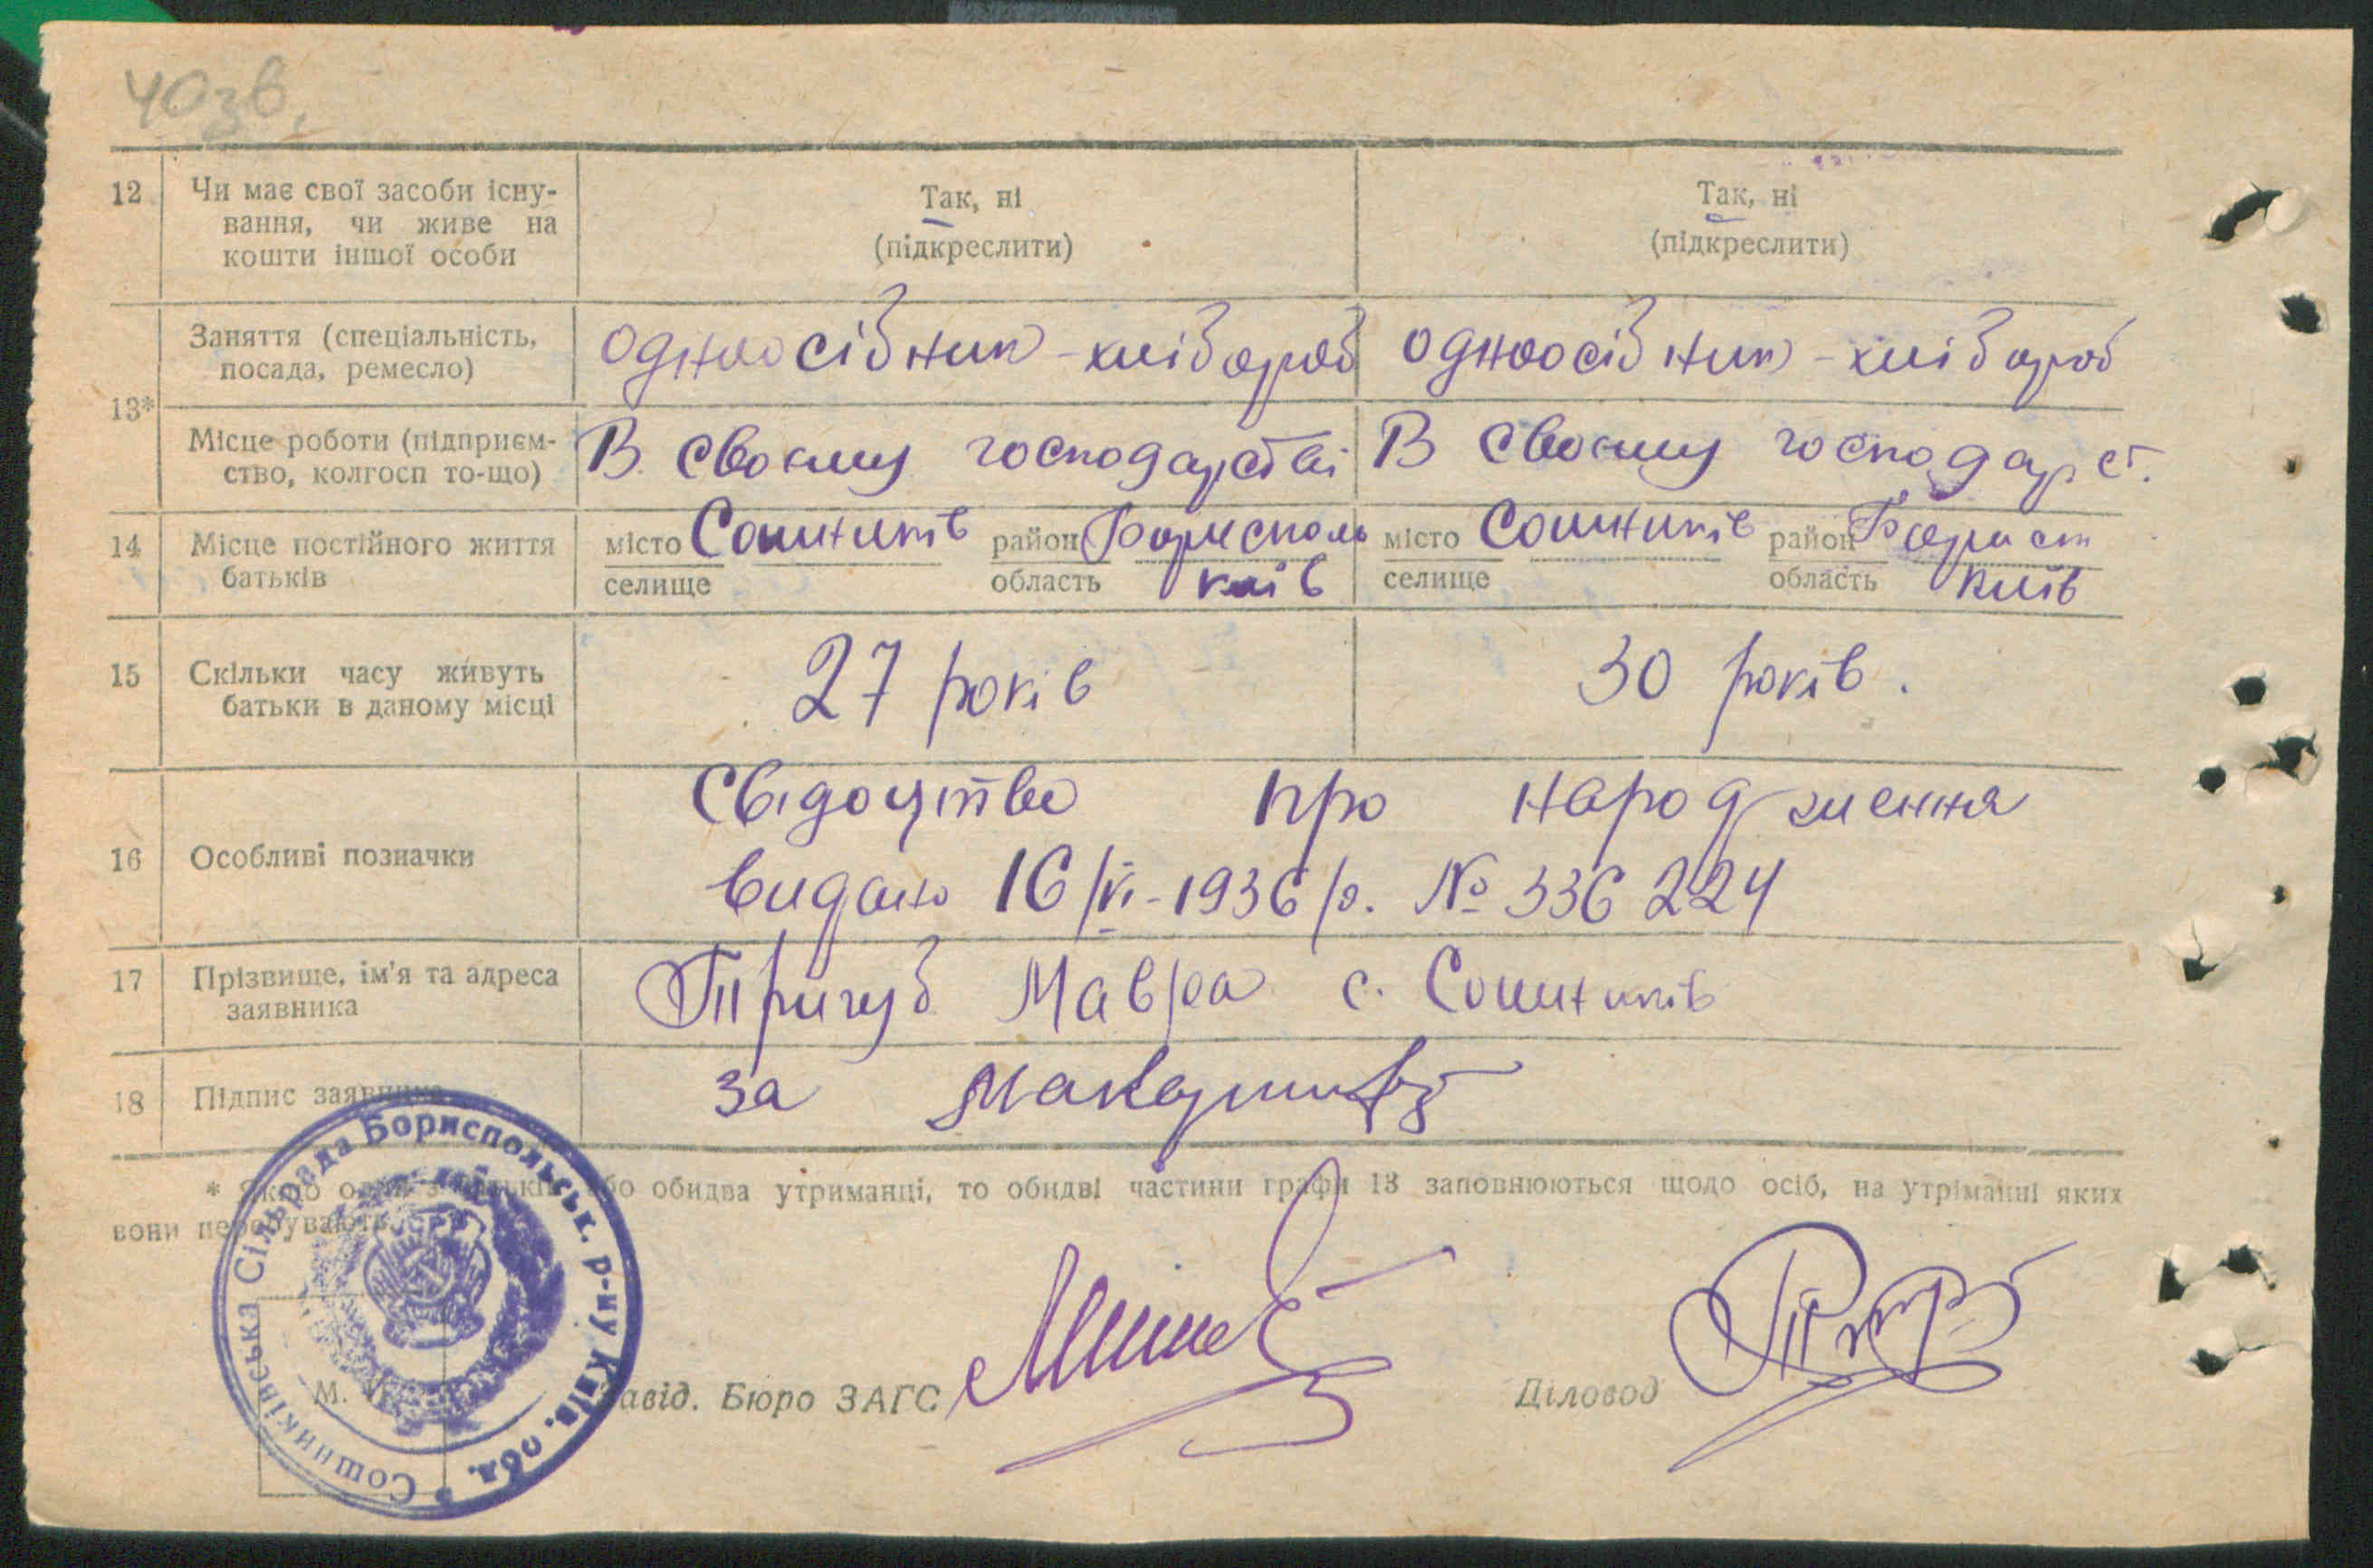 40зв.
12 Чи має свої засоби існу- Так, ні Так, ні
вання, чи живе на (підкреслити) (підкреслити)
кошти іншої особи
13* Заняття (спеціальність, одноосібник - хлібороб одноосібник - хлібороб
посада, ремесло)
Місце роботи (підприєм- В своєму господарстві В своєму господарст.
ство, колгосп то-що)
14 Місце постійного життя місто Сошників район Бориспол місто Сошників район Борисп
батьків селище область Київ селище область Київ
15 Скільки часу живуть 27 років 30 років.
батьки в даному місці
Свідоцтво про народження
16 Особливі позначки
видано 16/VI-1936 р. № 336224
17 Прізвище, ім'я та адреса Тригуб Мавра с. Сошників
заявника
18 Підпис заявника за
* Якщо один з батьків або обидва утриманці, то обидві частини графи 13 заповнюються щодо осіб, на утріманні яких
вони перебувають.
Сошниківська Сільрада Бориспольськ. р-ну Київ. обл.
М. Завід. Бюро ЗАГС Діловод